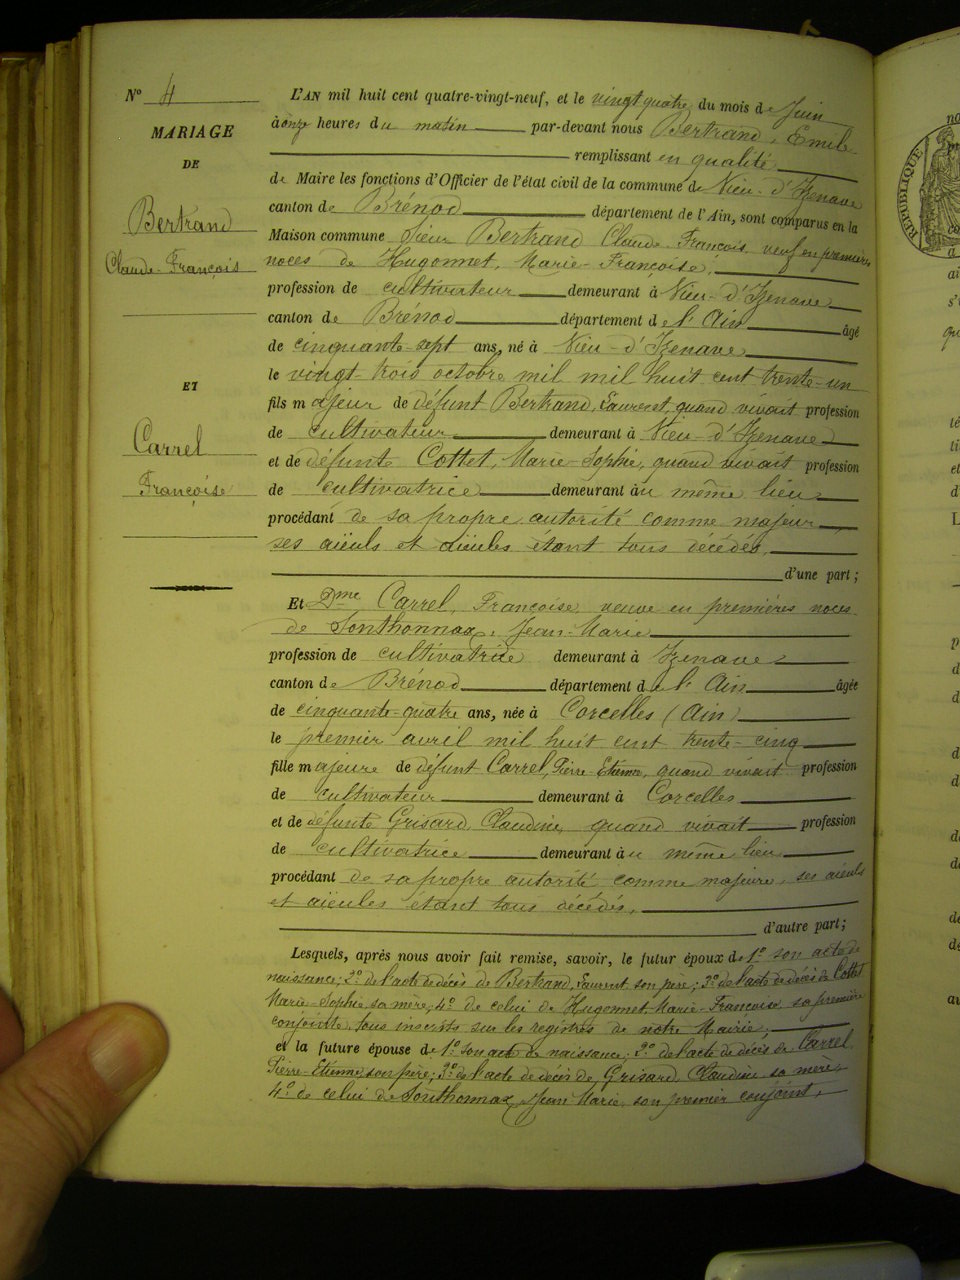 N° 4
MARIAGE
DE
Bertrand
Claude-François
ET
Carrel
Françoise
L'AN mil huit cent quatre-vingt-neuf, et le vingt quatre du mois de Juin
à onze heures du matin par-devant nous Bertrand, Emile
remplissant en qualité
de Maire les fonctions d'Officier de l'état civil de la commune de Vieu-d'Izenave
canton de Brénod département de l'Ain, sont comparus en la
Maison commune Sieur Bertrand Claude-François, veuf en premières
noces de Hugonnet, Marie-Françoise,
profession de cultivateur demeurant à Vieu-d'Izenave
canton de Brénod département de l'Ain âgé
de cinquante-sept ans, né à Vieu-d'Izenave
le vingt-trois octobre mil mil huit cent trente-un
fils majeur de défunt Bertrand, Laurent, quand vivait profession
de cultivateur demeurant à Vieu-d'Izenave
et de défunte Cottet, Marie-Sophie, quand vivait profession
de cultivatrice demeurant àu même lieu
procédant de sa propre autorité comme majeur
ses aïeuls et aïeules étant tous décédés,
d'une part;
Et Dme Carrel, Françoise, veuve en premières noces
de Sonthonnax, Jean-Marie
profession de cultivatrice demeurant à Izenave
canton de Brénod département de l'Ain âgée
de cinquante-quatre ans, née à Corcelles (Ain)
le premier avril mil huit cent trente-cinq
fille majeure de défunt Carrel, Pierre-Etienne, quand vivait profession
de cultivateur demeurant à Corcelles
et de défunte Grisard, Claudine, quand vivait profession
de cultivatrice demeurant àu même lieu
procédant de sa propre autorité comme majeure, ses aïeuls
et aïeules étant tous décédés,
d'autre part;
Lesquels, après nous avoir fait remise, savoir, le futur époux de 1° son acte de
naissance; 2° de l'acte de décès de Bertrand, Laurent son père; 3° de l'acte de décès de Cottet
Marie-Sophie, sa mère; 4° de celui de Hugonnet, Marie-Françoise, sa première
conjointe, tous inscrits sur les registres de notre Mairie;
et la future épouse de 1° son acte de naissance; 2° de l'acte de décès de Carrel
Pierre-Etienne, son père; 3° de l'acte de décès de Grisard, Claudine sa mère,
4° de celui de Sonthonnax, Jean-Marie, son premier conjoint,
RÉPUBLIQUE